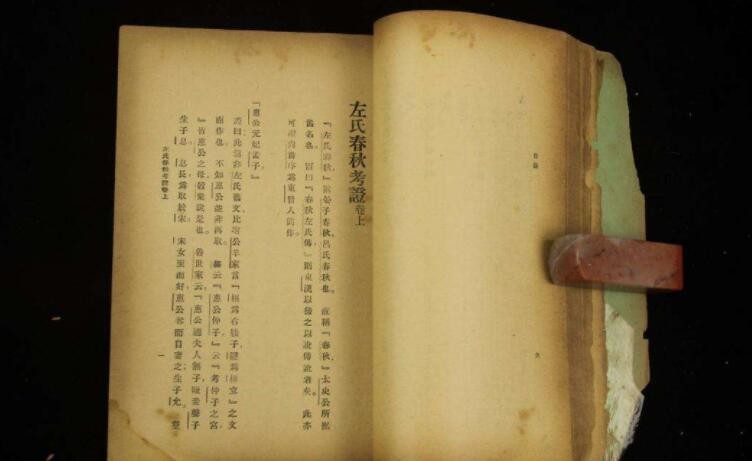 目錄
六
左氏春秋考證 卷上
『左氏春秋』猶晏子春秋呂氏春秋也。 直稱『春秋』太史公所據
舊名也。 冒曰『春秋左氏傳』則東漢以後之以訛傳訛者矣。 此亦
可證 序爲東晉人僞作
『惠公元妃孟子』
證曰此篇非左氏舊文比附公羊家言『桓爲右媵子隱爲桓立』之文
而作也。 不知惠公並非再取 經云『惠公仲子』云『考仲子之宮
』皆惠公之母穀梁說是也。 魯世家云『惠公適夫人無子賤妾聲子
生子息。 息長爲取於宋 宋女至而好惠公奪而自妻之生子允 登
左氏春秋考證卷上
一